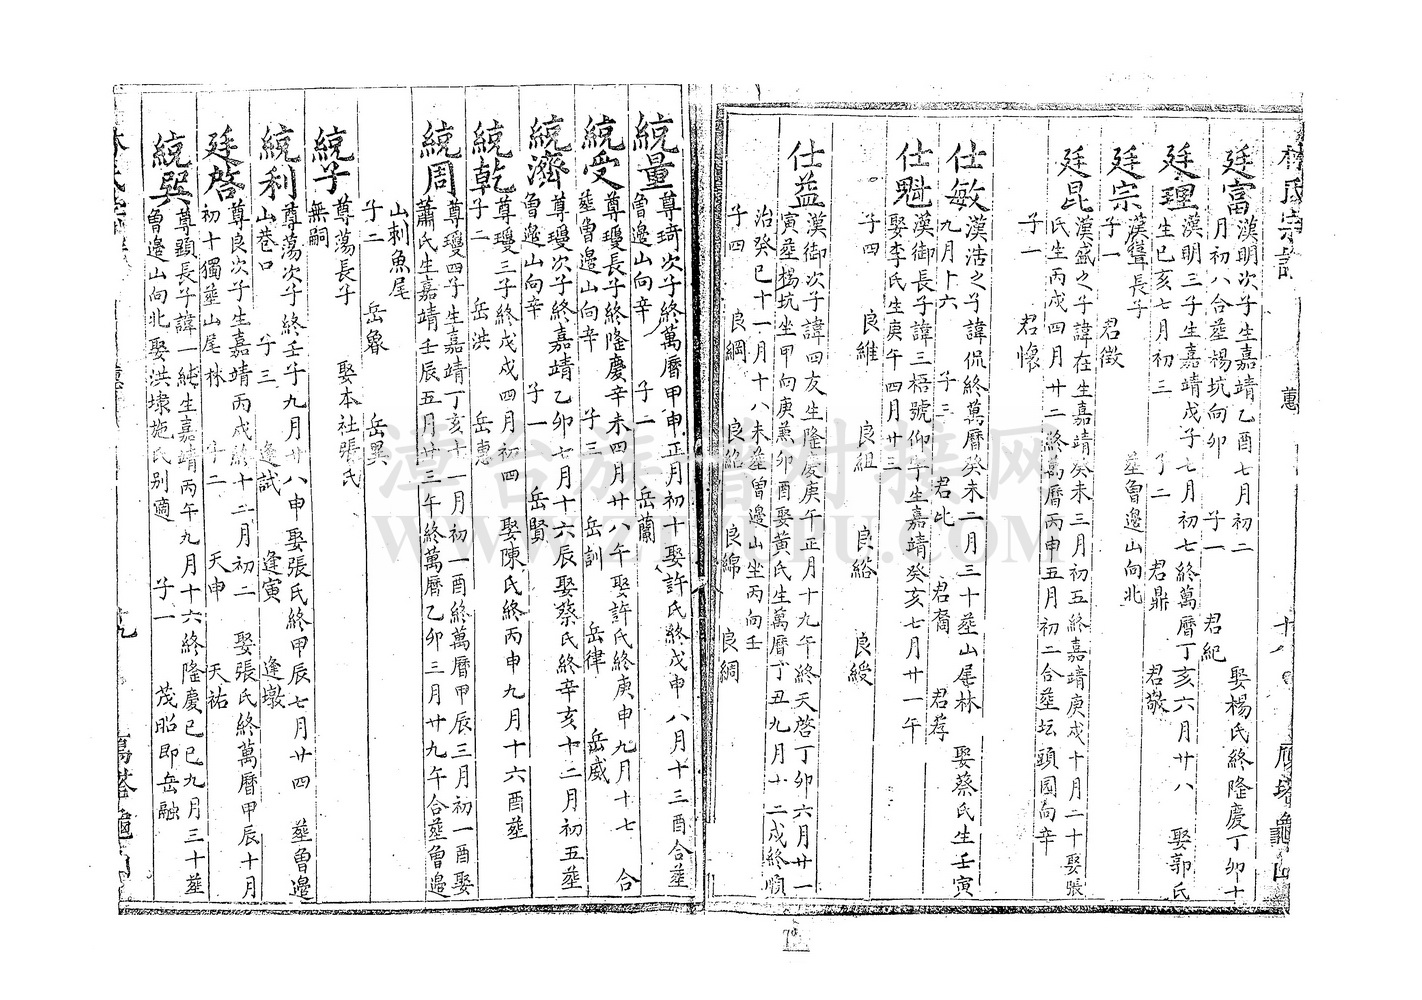 林氏宗譜 蕙 十八 雁塔龜山
廷富 漢明次子生嘉靖乙酉七月初二 娶楊氏終隆慶丁卯十
月初八合塟楊坑向卯 子一 君紀
廷理 漢明三子生嘉靖戊子七月初七終萬曆丁亥六月廿八 娶郭氏
生己亥七月初三 子二 君鼎 君敬
廷宗 漢長子 塟魯邊山向北
子一 君徵
廷昆 漢盛之子諱在生嘉靖癸未三月初五終嘉靖庚戌十月二十娶張
氏生丙戌四月廿二終萬曆丙申五月初二合塟坛頭園向辛
子一 君懷
仕敏 漢浩之子諱侃終萬曆癸未二月三十塟山尾林 娶蔡氏生壬寅
九月十六 子三 君比 君裔 君荐
仕魁 漢御長子諱三梧號仰宇生嘉靖癸亥七月廿一午
娶李氏生庚午四月廿三
子四 良維 良組 良綌 良綬
仕益 漢御次子諱四友生隆慶庚午正月十九午終天啓丁卯六月廿一
寅塟楊坑坐甲向庚兼卯酉娶黃氏生萬曆丁丑九月十二戌終順
治癸巳十一月十八未塟曾邊山坐丙向壬
子四 良綱 良紹 良綿 良綢
統量 尊琦次子終萬曆甲申正月初十娶許氏終戊申八月十三酉合塟
魯邊山向辛 子二 岳蘭
統受 尊瓊長子終隆慶辛未四月廿八午娶許氏終庚申九月十七 合
塟魯邊山向辛 子三 岳訓 岳律 岳威
統濟 尊瓊次子終嘉靖乙卯七月十六辰娶蔡氏終辛亥十二月初五塟
魯邊山向辛 子一 岳賢
統乾 尊瓊三子終戊戌四月初四 娶陳氏終丙申九月十六酉塟
子二 岳洪 岳惠
統周 尊瓊四子生嘉靖丁亥十一月初一酉終萬曆甲辰三月初一酉娶
蕭氏生嘉靖壬辰五月廿三午終萬曆乙卯三月廿九午合塟魯邊
山刺魚尾
子二 岳魯 岳巽
統子 尊蕩長子 娶本社張氏
無嗣
統利 尊蕩次子終壬子九月廿八申娶張氏終甲辰七月廿四 塟魯邊
山巷口 子三 逢試 逢寅 逢墩
廷啓 尊良次子生嘉靖丙戌終十二月初二 娶張氏終萬曆甲辰十月
初十獨塟山尾林 子二 天申 天祐
統巽 尊顕長子諱一純生嘉靖丙午九月十六終隆慶己巳九月三十塟
魯邊山向北娶洪埭施氏别適 子一 茂昭即岳融
十九
漳台族谱对接网
WWW.ZTZUPU.COM
70